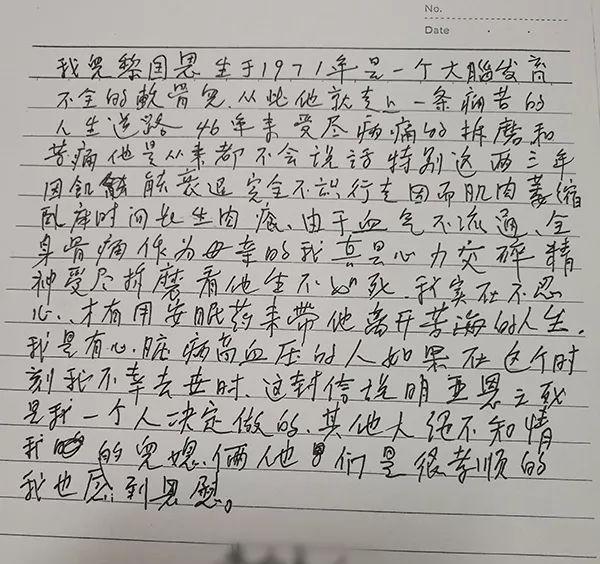 No.
Date
我兒黎国恩生于1971年是一个大腦发育
不全的軟骨兒.从此他就走上一条痛苦的
人生道路 46年来受尽病痛的折磨和
苦痛他是从来都不会说話特别这两三年
因飢 能衰退完全不识行走因而肌肉萎缩
卧床时间长生肉 由于血气不流通、全
身骨痛作为母亲的我真是心力交碎精
神受尽折磨看他生不如死.我实在不忍
心、才有用安眠药来带他离开苦海的人生.
我是有心脏病高血压的人如果在这个时
刻我不幸去世时.这封信说明 恩之死
是我一个人决定做的.其他人绝不知情
我 的兒媳俩他们是很孝顺的
我也感到 慰。